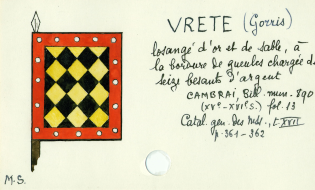 VRETE (Gorris)
losangé d'or et de sable, à
la bordure de gueules chargée de
seize besants d'argent
CAMBRAI, Bibl. mun. 890
(XVe-XVIe s.) fol. 13
Catal. gen. des Mss., t. XVII
p. 361-362
M.S.